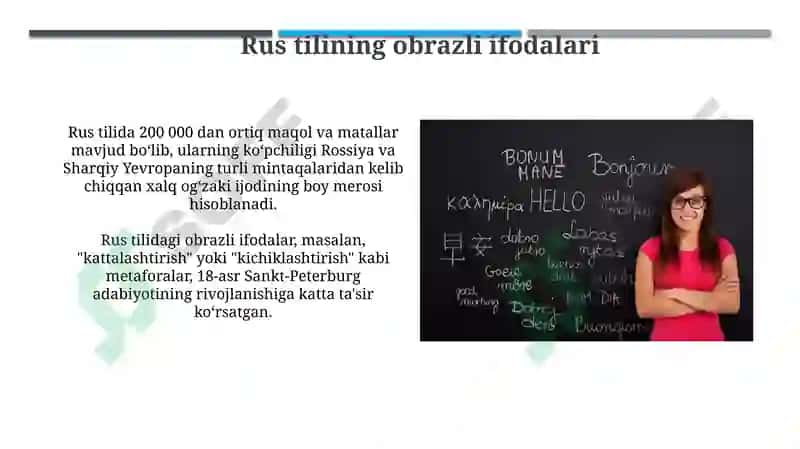 Rus tilining obrazli ifodalari
Rus tilida 200 000 dan ortiq maqol va matallar
mavjud bo‘lib, ularning ko‘pchiligi Rossiya va
Sharqiy Yevropaning turli mintaqalaridan kelib
chiqqan xalq og‘zaki ijodining boy merosi
hisoblanadi.
Rus tilidagi obrazli ifodalar, masalan,
"kattalashtirish" yoki "kichiklashtirish" kabi
metaforalar, 18-asr Sankt-Peterburg
adabiyotining rivojlanishiga katta ta'sir
ko‘rsatgan.
BONUM
MANE
Bonjour
καλημέρα
HELLO
dobro
jutro
Labas
rytas
good
morning